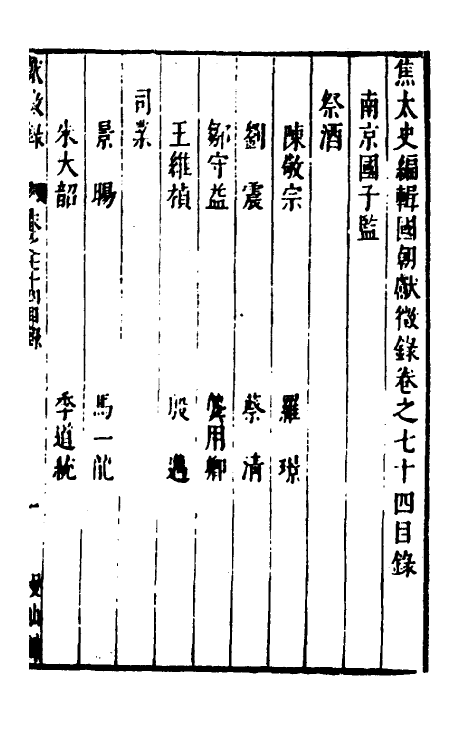 焦太史編輯國朝獻徵錄卷之七十四目錄
南京國子監
祭酒
陳敬宗 羅璟
劉震 蔡清
鄒守益 龔用卿
王維楨 殷邁
司業
景暘 馬一龍
朱大韶 季道統
獻徵錄 卷之七十四目錄 一